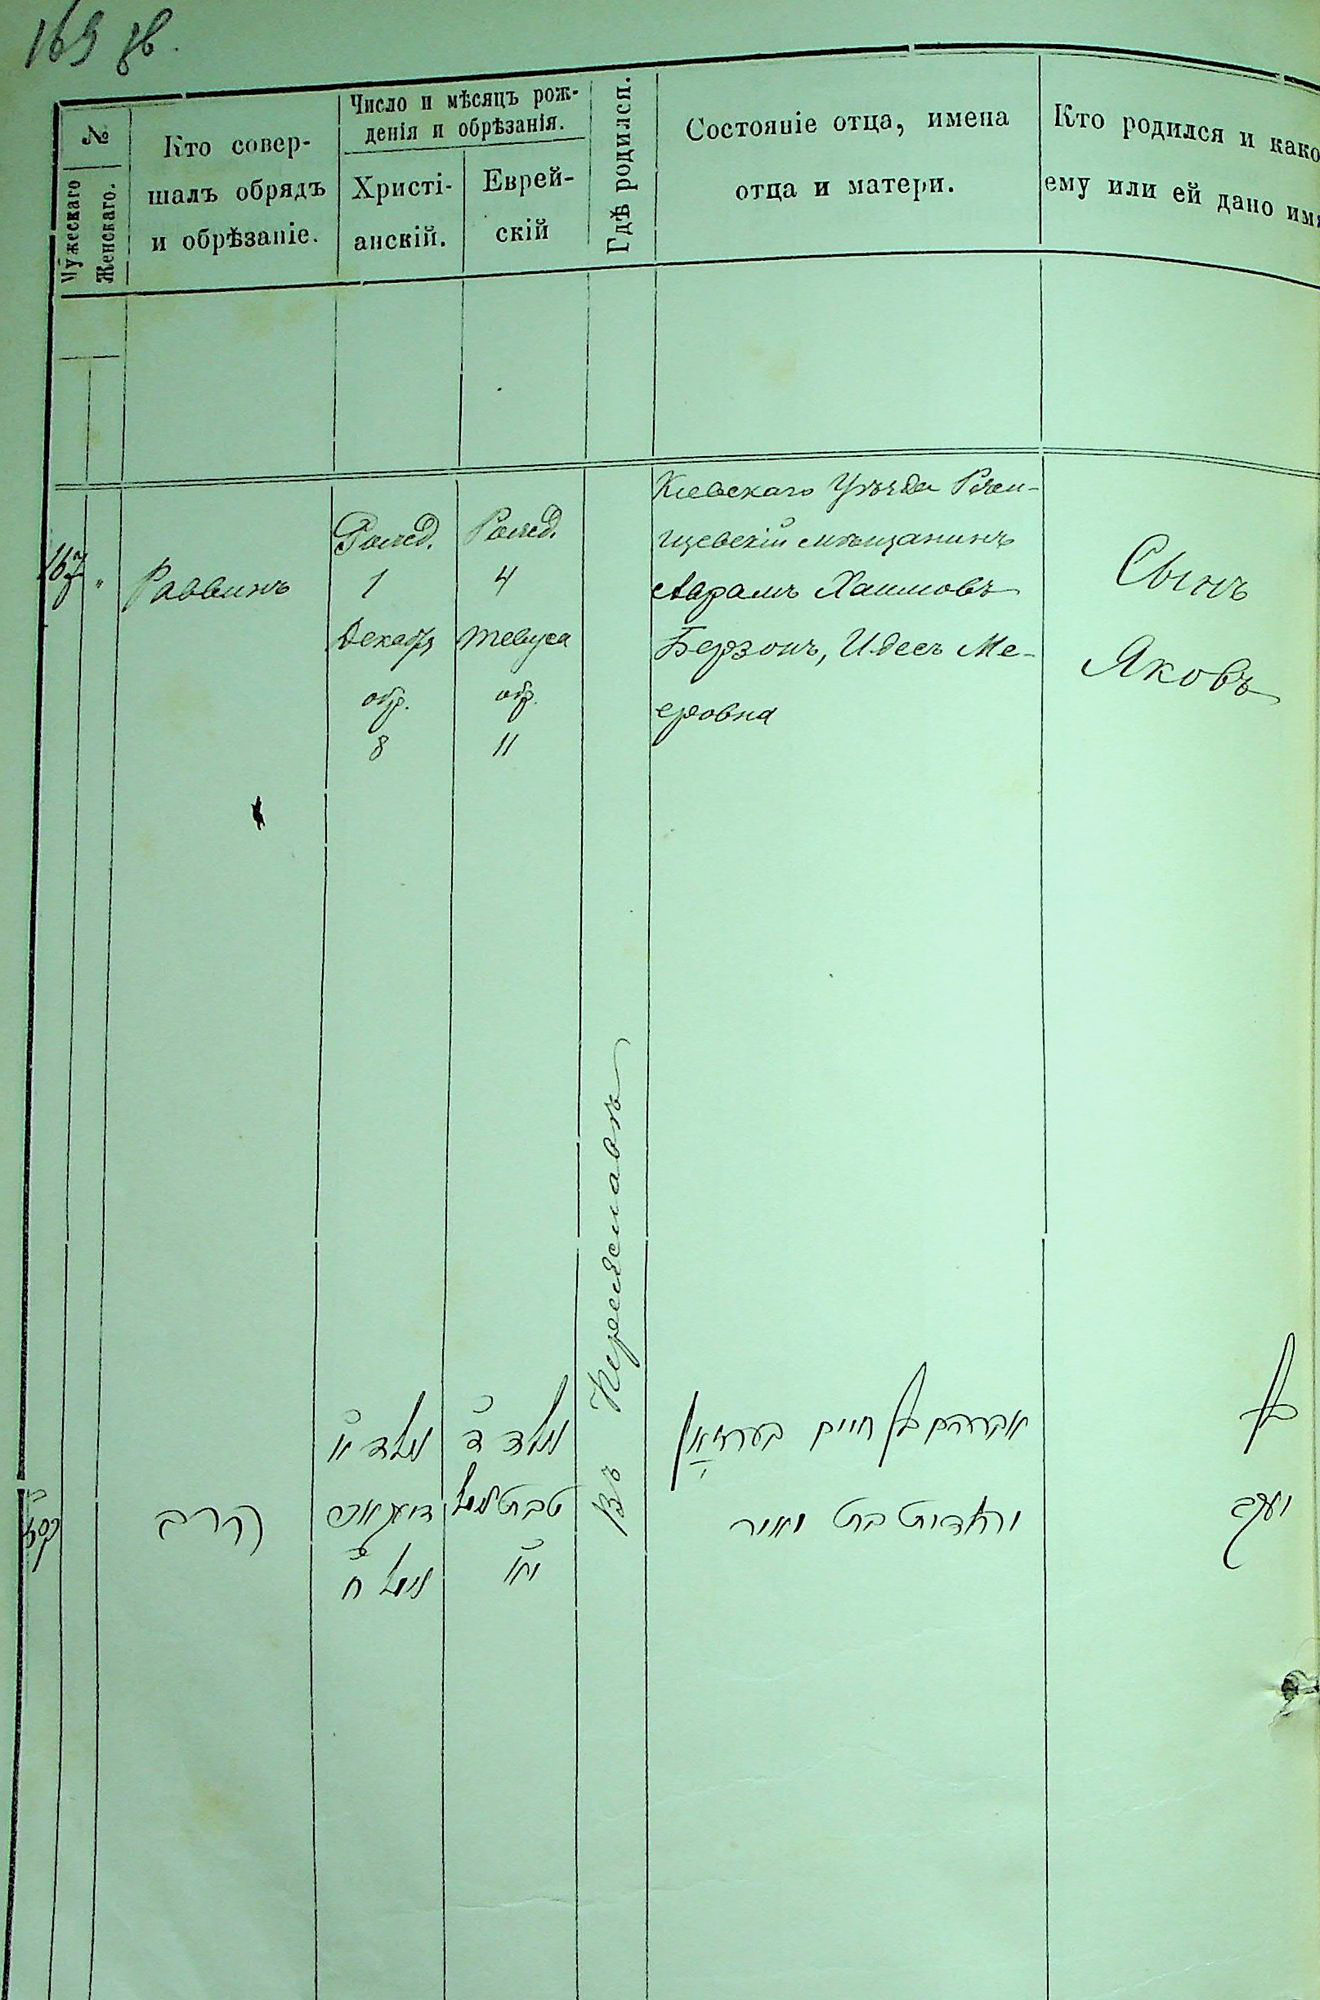 169 зв.
№
Мужескаго
Женскаго.
Кто совер-
шалъ обрядъ
и обрѣзаніе.
Число и мѣсяцъ рож-
денія и обрѣзанія.
Христі-
анскій.
Еврей-
скій
Гдѣ родился.
Состояніе отца, имена
отца и матери.
Кто родился и како
ему или ей дано имя
167
"
Раввинъ
Рожд.
1
Декабря
обр.
8
Рожд.
4
тевуса
обр.
11
Въ Переяславѣ
Кіевскаго Уѣзда Ржи-
щевскій мѣщанинъ
Аврамъ Хаимовъ
Берзонъ, Идесъ Ме-
еровна
Сынъ
Яковъ
קסז
הרב
נולד א
נימול ח
נולד ד
טבת נימול
יא
אברהם בן חיים בערזאן
בן
יעקב